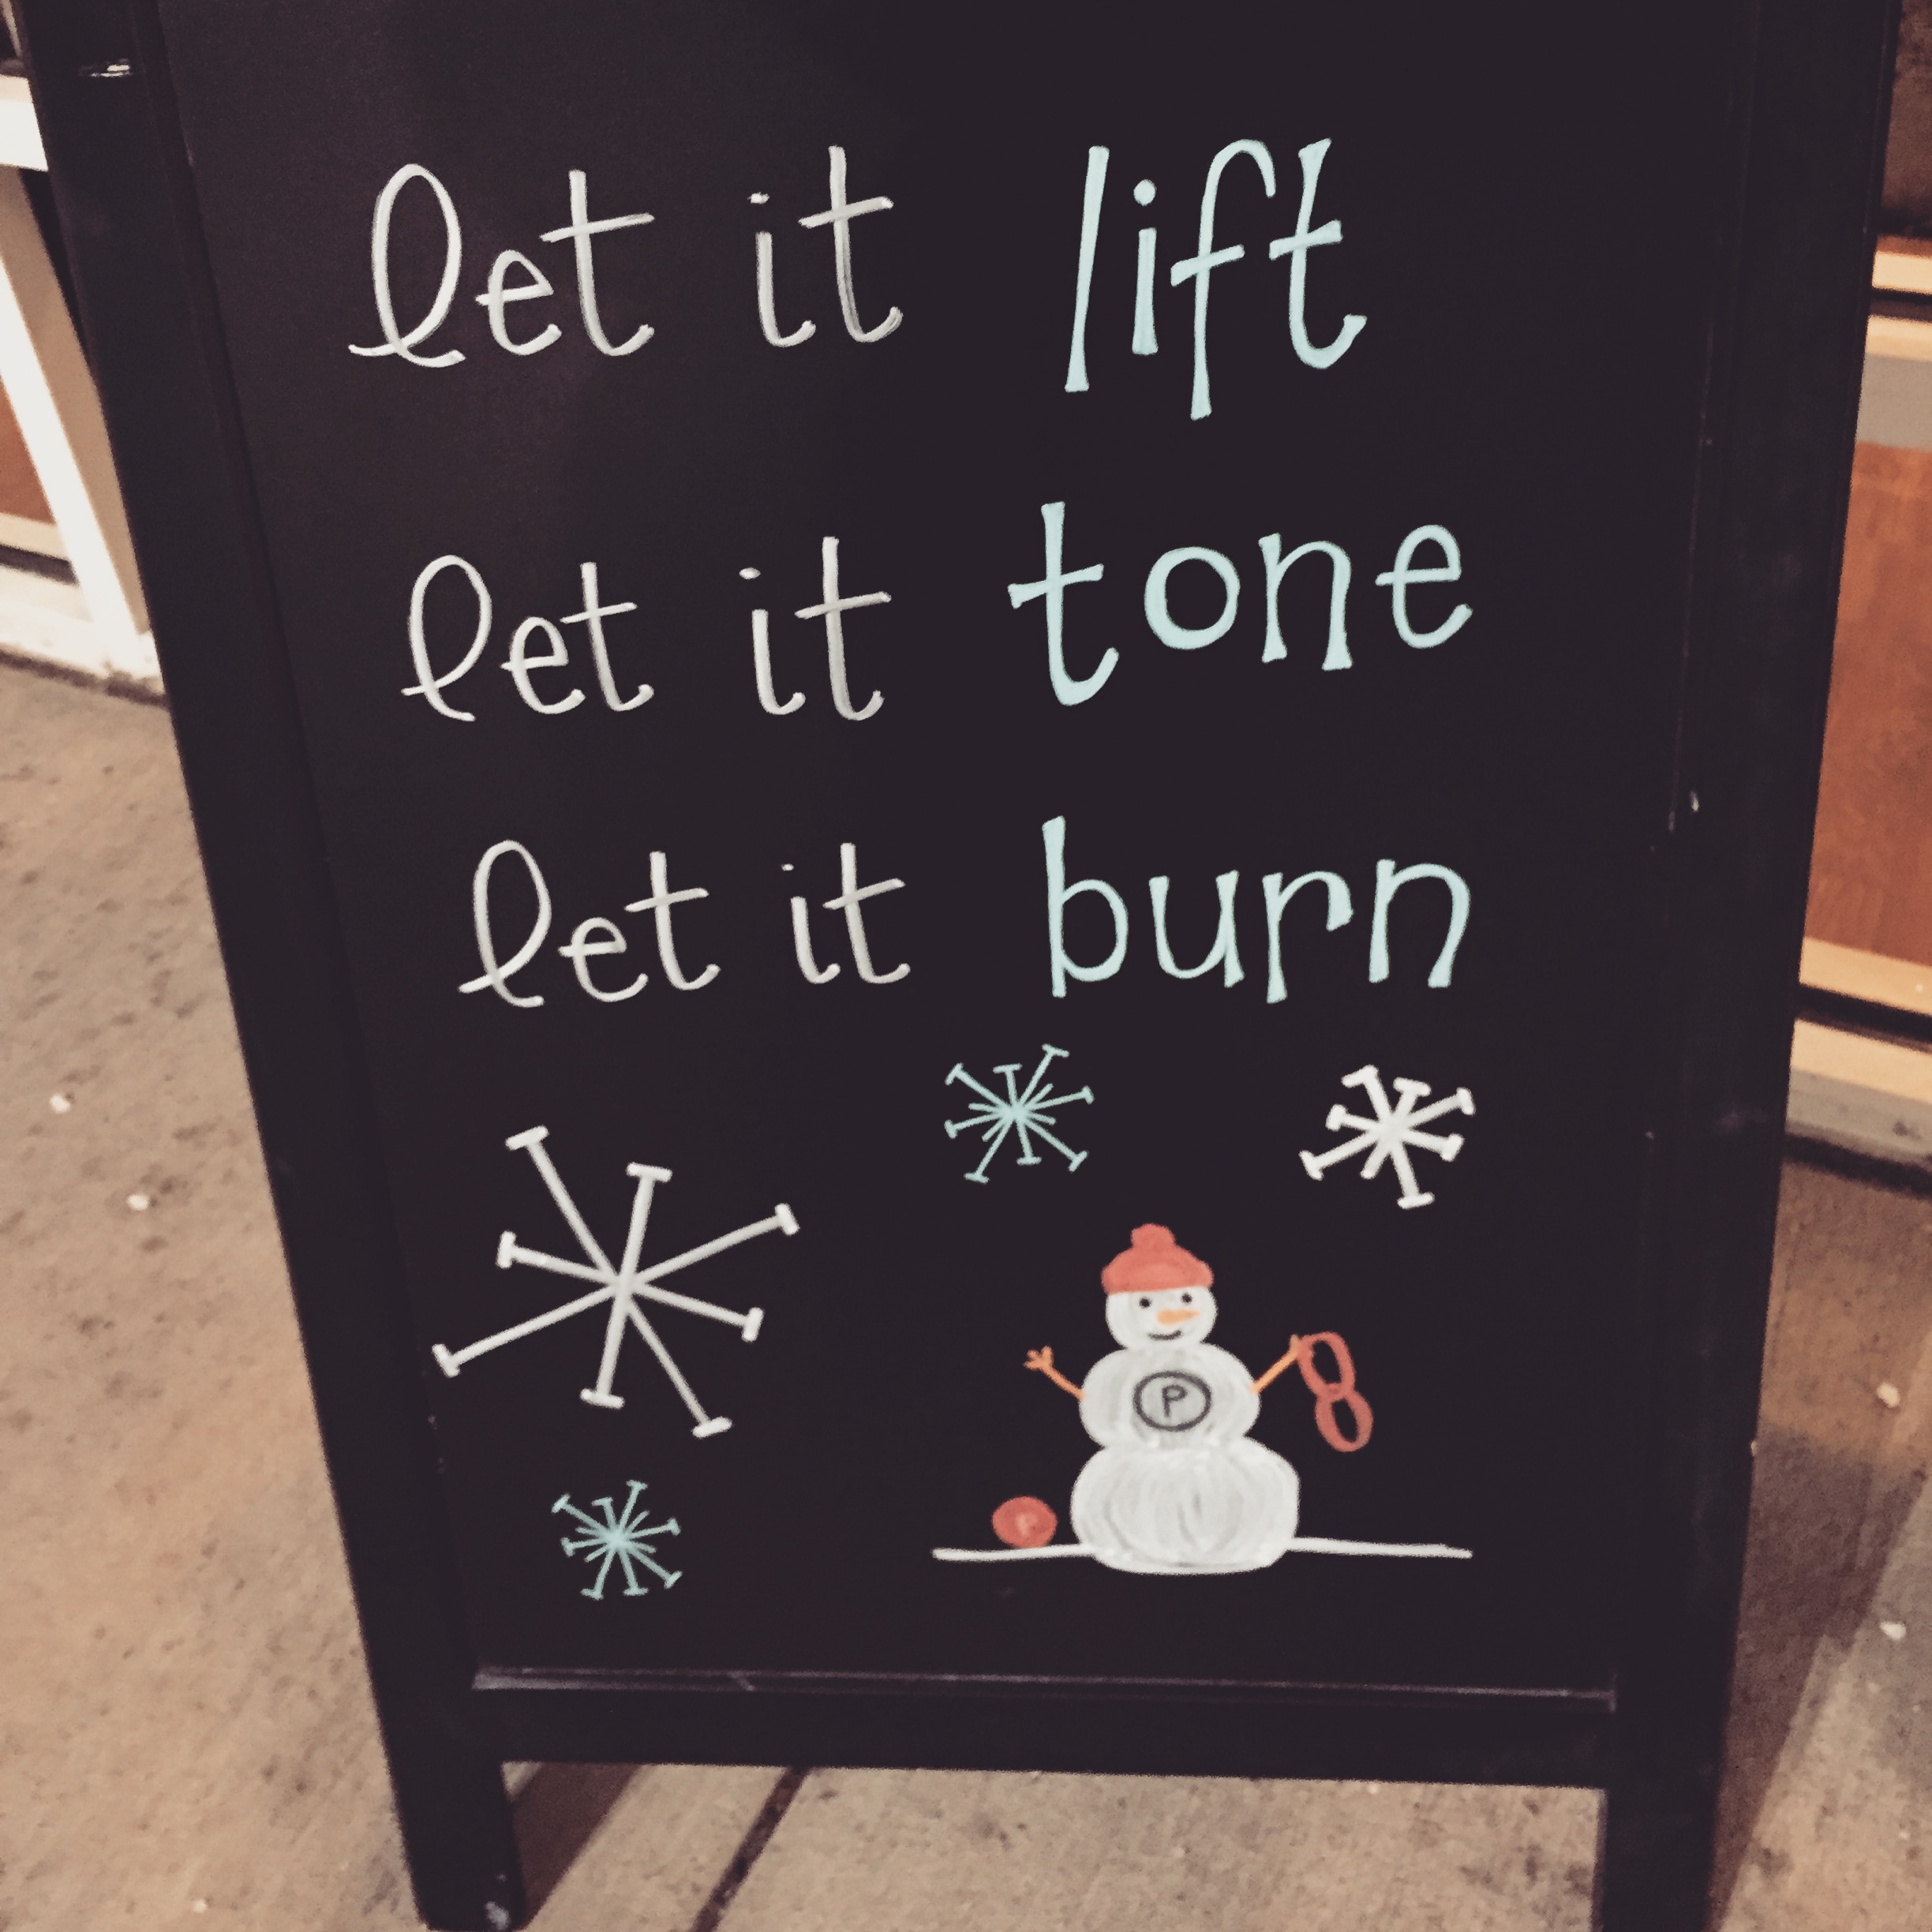 let it lift
let it tone
let it burn
P
P